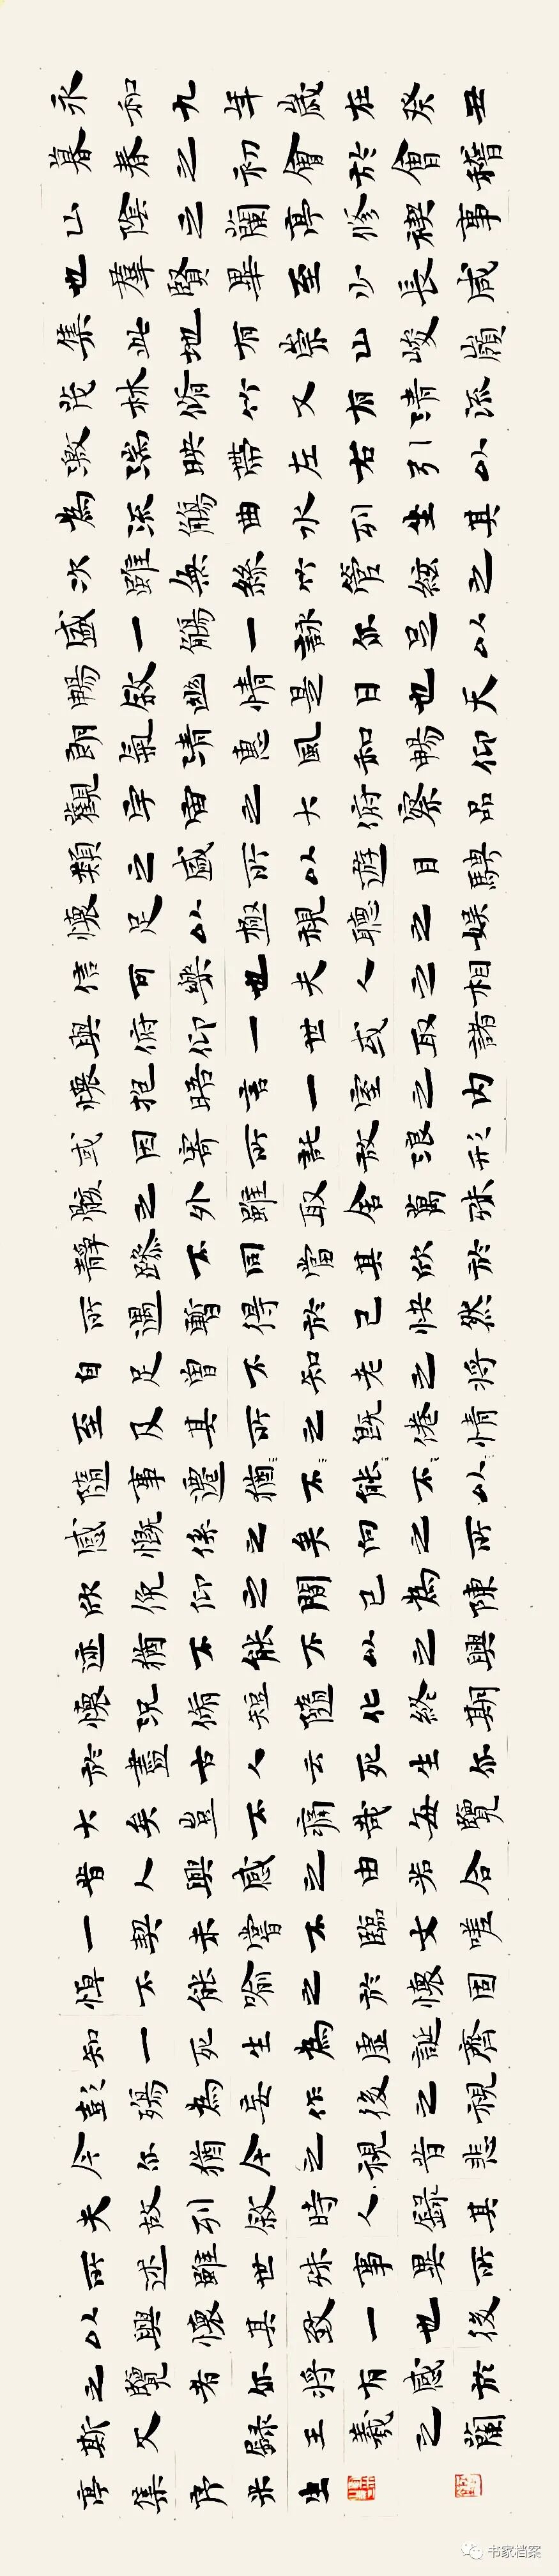 永和九年歲在癸丑
暮春之初會於會稽
山陰之蘭亭修禊事
也羣賢畢至少長咸
集此地有崇山峻嶺
茂林脩竹又有清流
激湍映帶左右引以
為流觴曲水列坐其
次雖無絲竹管絃之
盛一觴一詠亦足以
暢敘幽情是日也天
朗氣清惠風和暢仰
觀宇宙之大俯察品
類之盛所以遊目騁
懷足以極視聽之娛
信可樂也夫人之相
與俯仰一世或取諸
懷抱晤言一室之內
或因寄所託放浪形
骸之外雖取舍萬殊
靜躁不同當其欣於
所遇暫得於己快然
自足曾不知老之將
至及其所之既倦情
隨事遷猶不能不以
感慨係之矣向之所
欣俛仰之間已為陳
迹猶不能不以之興
懷況脩短隨化終期
於盡古人云死生亦
大矣豈不痛哉每覽
昔人興感之由若合
一契未嘗不臨文嗟
悼不能喻之於懷固
知一死生為虛誕齊
彭殤為妄作後之視
今亦猶今之視昔悲
夫故列敘時人錄其
所述雖世殊事異所
以興懷其致一也後
之覽者亦將有感於
斯文錄王羲之蘭
亭集序米生
书家档案